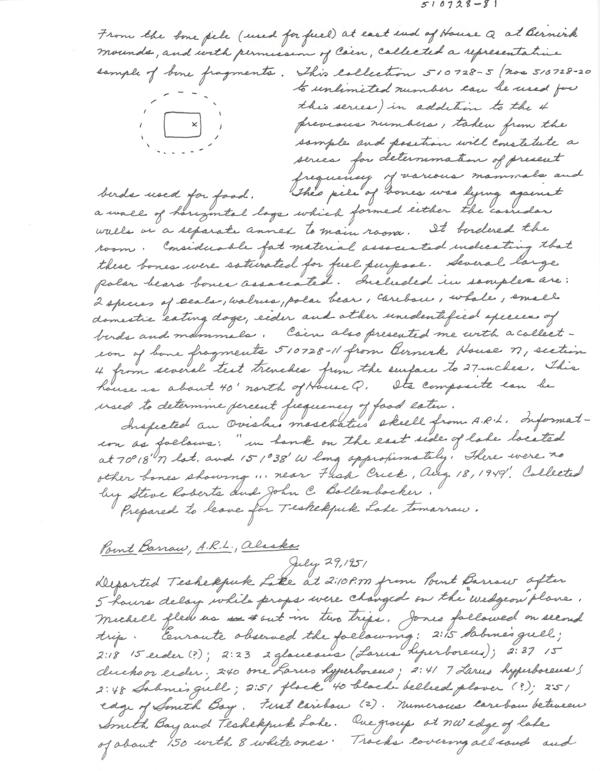 510728-81
From the bone pile (used for fuel) at east end of House Q at Birnirk
Mounds, and with permission of Cain, collected a representative
sample of bone fragments. This collection 510728-5 (nos 510728-20
to unlimited number can be used for
this series) in addition to the 4
previous numbers, taken from the
sample and position will constitute a
series for determination of present
frequency of various mammals and
x
birds used for food. This pile of bones was lying against
a wall of horizontal logs which formed either the corridor
walls or a separate annex to main room. It bordered the
room. Considerable fat material associated indicating that
these bones were saturated for fuel purpose. Several large
polar bears bones associated. Included in samples are:
2 species of seals, walrus, polar bear, caribou, whale, small
domestic eating dogs, eider and other unidentified species of
birds and mammals. Cain also presented me with a collect-
ion of bone fragments 510728-11 from Birnirk House N, section
4 from several test trenches from the surface to 27 inches. This
house is about 40' north of House Q. Its composite can be
used to determine percent frequency of food eaten.
Inspected an Ovisbis moschatus skull from A.R.L. Informat-
ion as follows: "in bank on the east side of lake located
at 70°18' N lat. and 151°38' W long approximately. There were no
other bones showing ... near Fish Creek, Aug 18, 1949'. Collected
by Steve Roberts and John C. Bollenbacker.
Prepared to leave for Teshekpuk Lake tomorrow.
Point Barrow, A.R.L., Alaska
July 29, 1951
Departed Teshekpuk Lake at 2:10 P.M from Point Barrow after
5 hours delay while props were changed on the "Widgeon" plane.
Michell flew us out in two trips. Jones followed on second
trip. Enroute observed the following: 2:15 Sabines gull;
2:18 15 eider (?); 2:23 2 glaucous (Larus hyperboreus); 2:37 15
ducks or eider; 2:40 one Larus hyperboreus; 2:41 7 Larus hyperboreus;
2:48 Sabines gull; 2:51 flock 40 black bellied plover (?); 2:51
edge of Smith Bay. First caribou (2). Numerous caribou between
Smith Bay and Teshekpuk Lake. One group at NW edge of lake
of about 150 with 8 white ones. Tracks covering all sand and